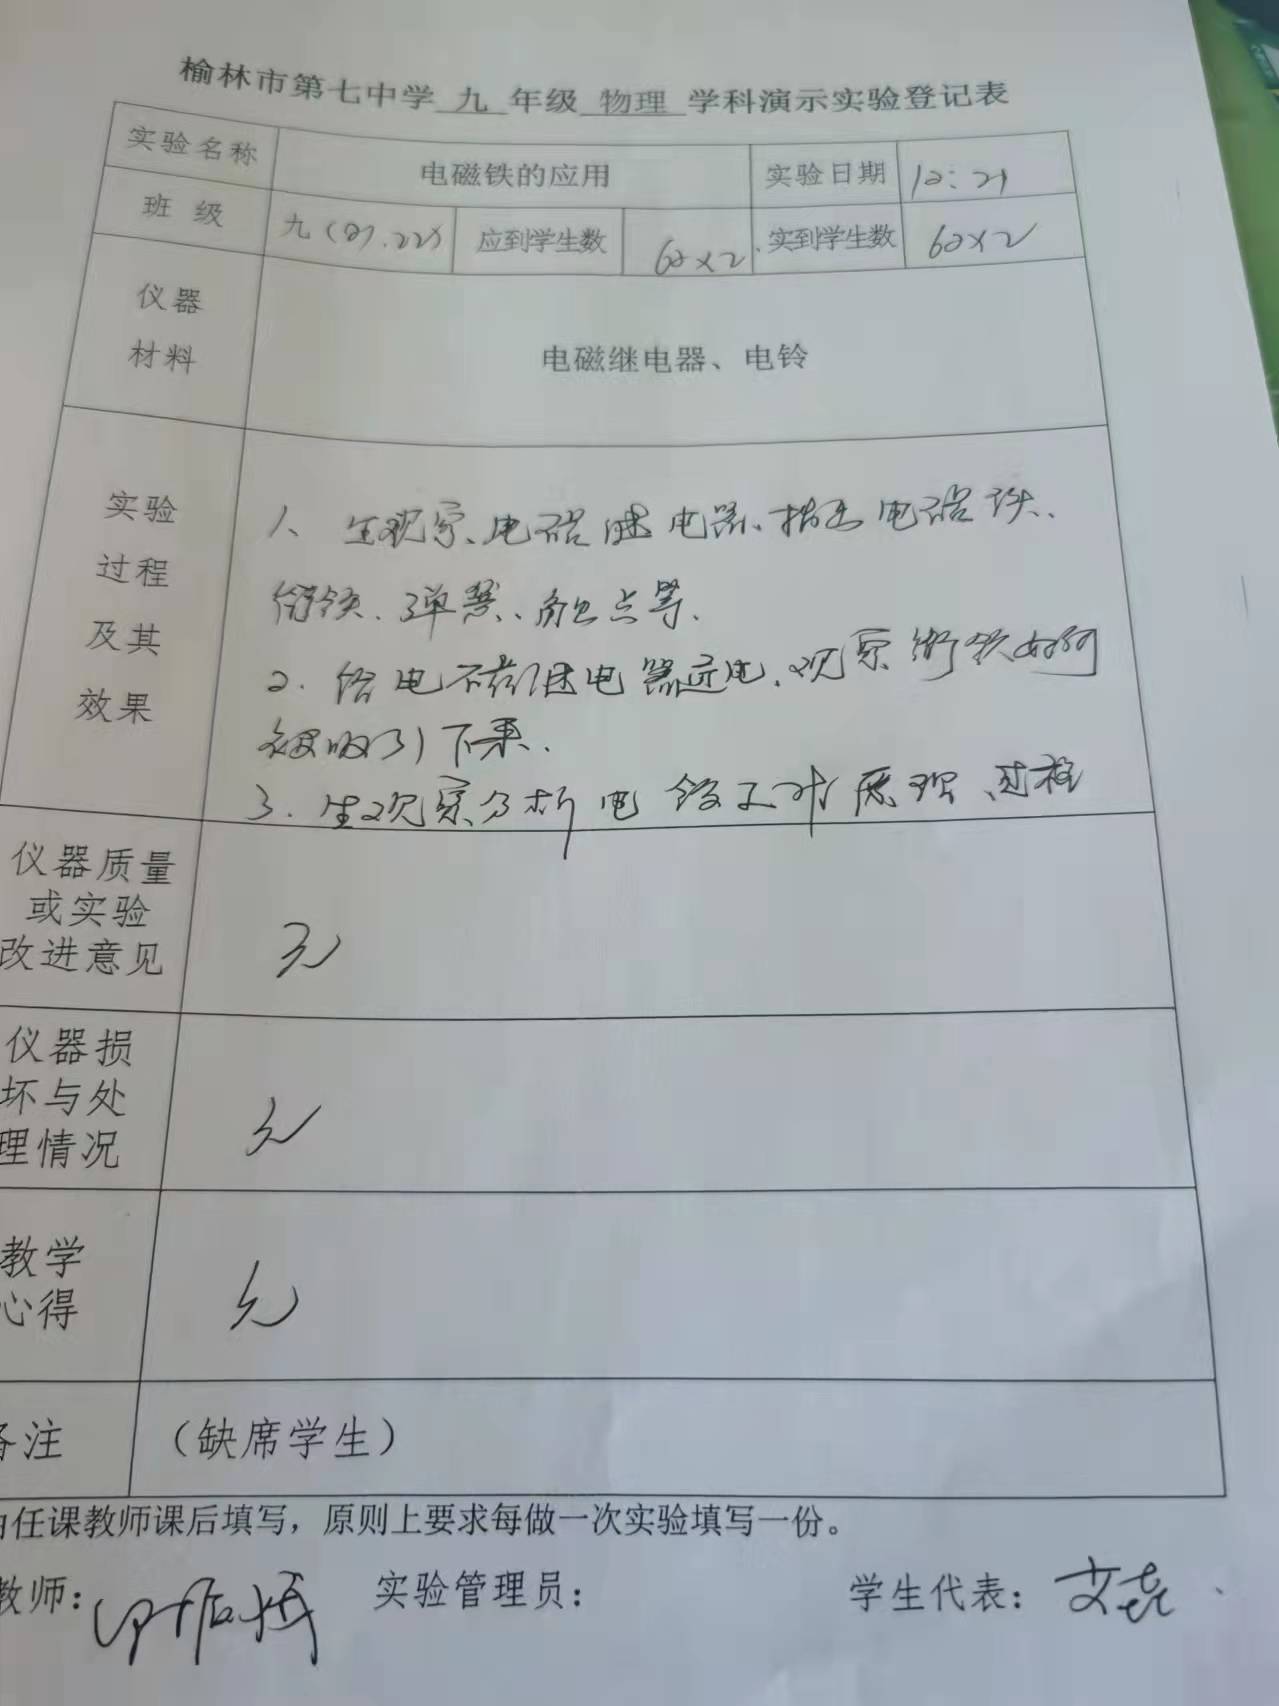 榆林市第七中学 九 年级 物理 学科演示实验登记表
实验名称 电磁铁的应用 实验日期 12:21
班 级 九(21.22) 应到学生数 60×2 实到学生数 60×2
仪器
材料
电磁继电器、电铃
实验
过程
及其
效果
1、生观察、电磁继电器、指出电磁铁、
衔铁、弹簧、触点等.
2. 给电磁继电器通电、观察衔铁如何
被吸引下来.
3. 生观察分析电铃工作原理、过程
仪器质量
或实验
改进意见
无
仪器损
坏与处
理情况
无
教学
心得
无
备注 (缺席学生)
由任课教师课后填写，原则上要求每做一次实验填写一份。
教师: 实验管理员: 学生代表: 艾